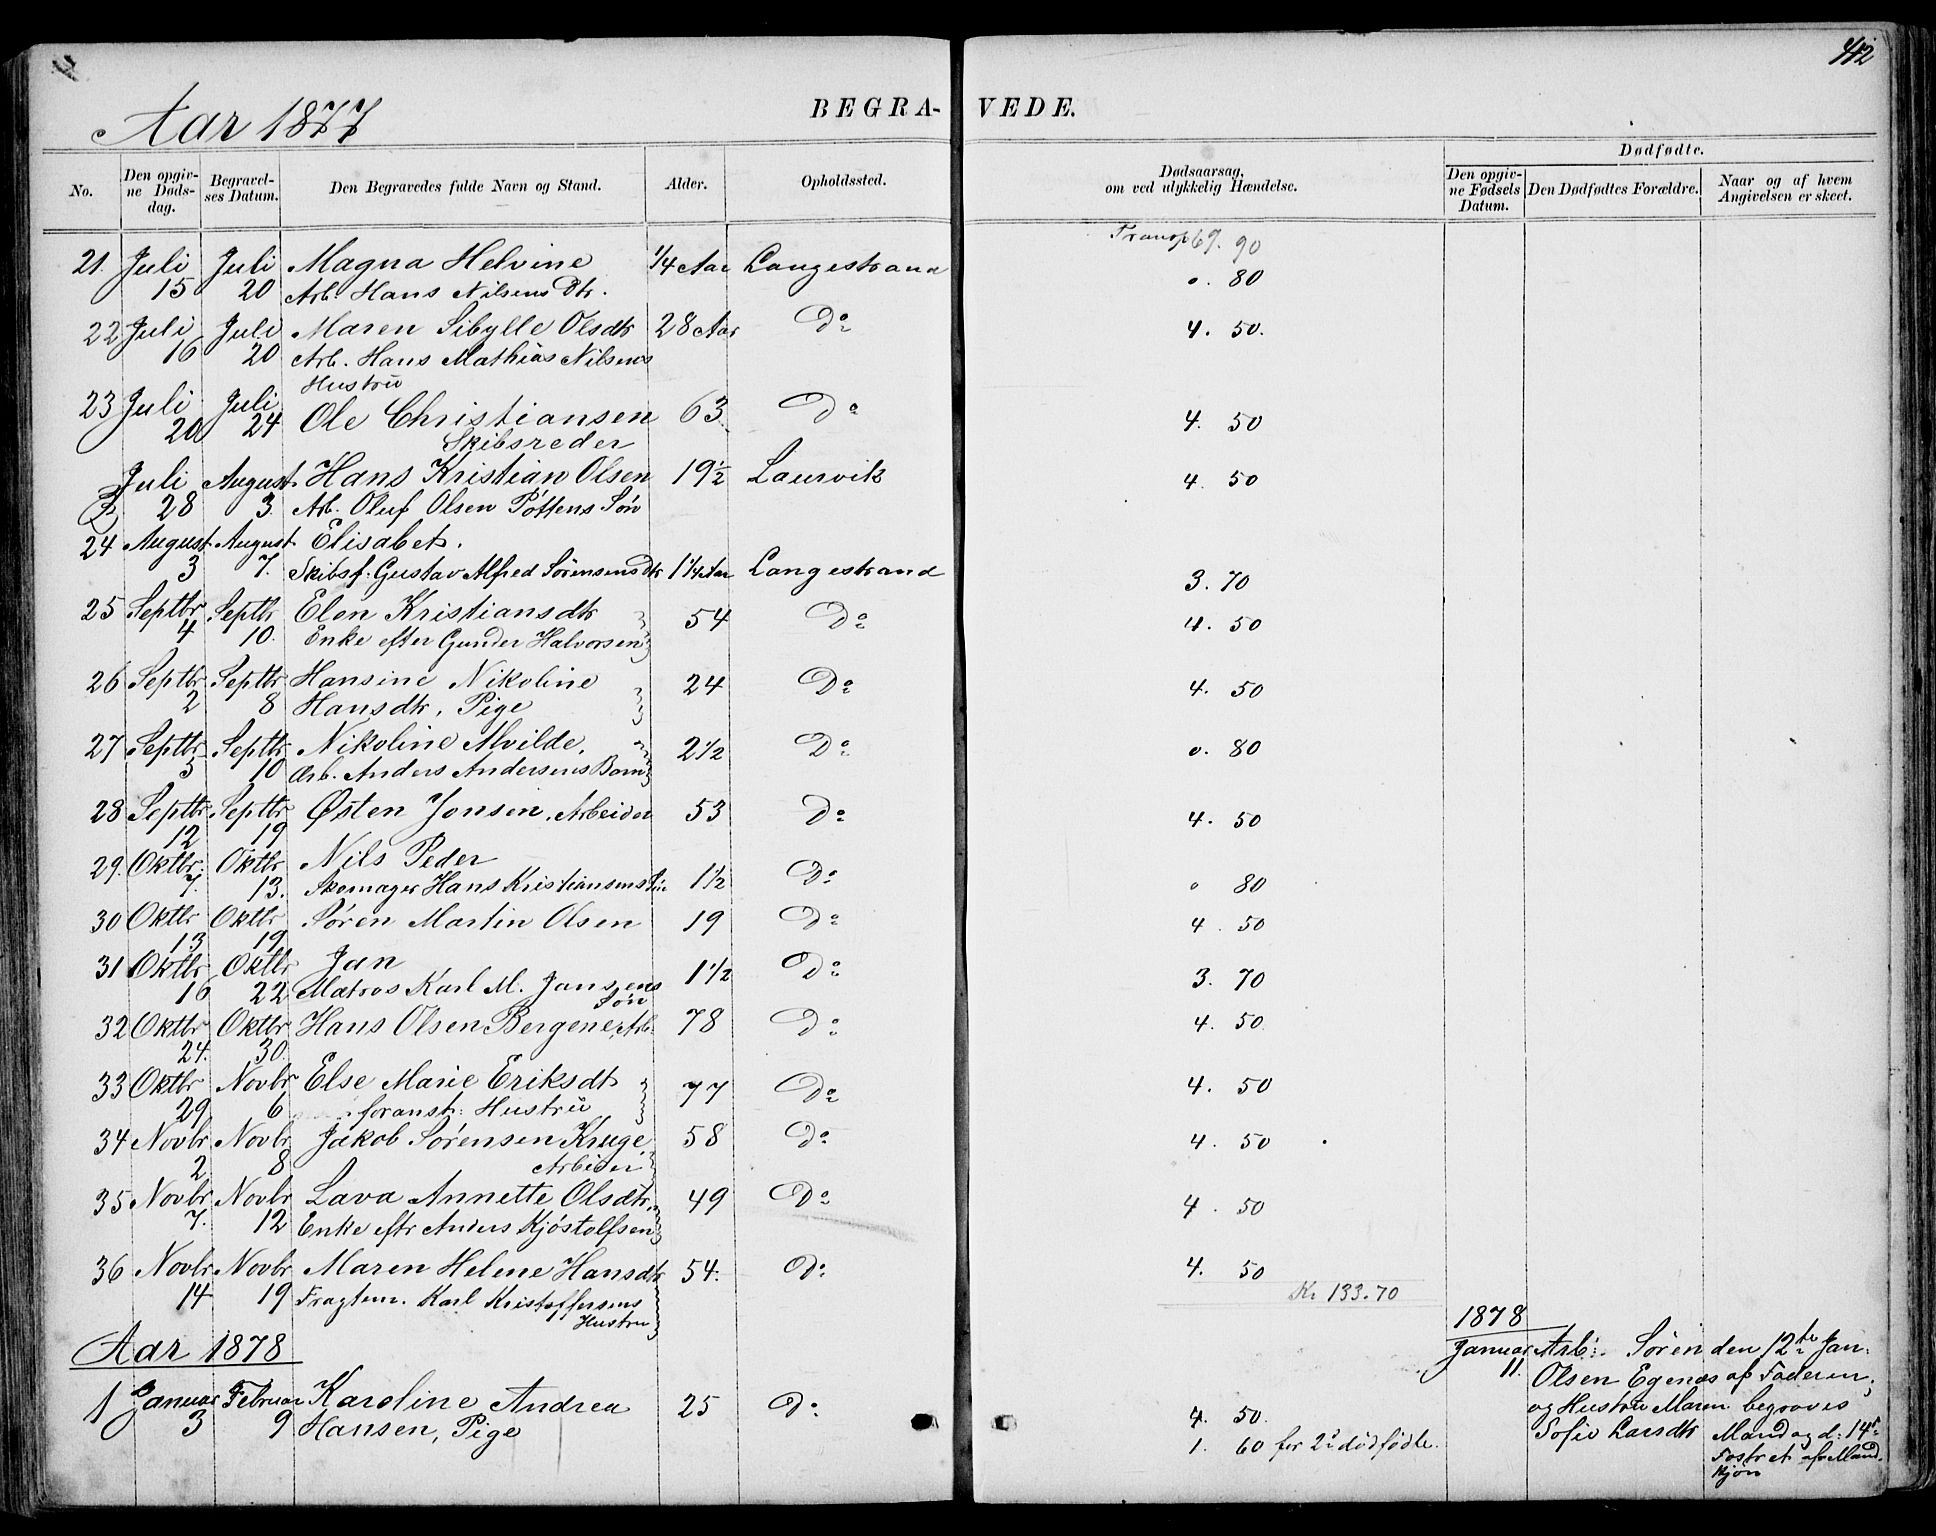 412
Aar 1877
BEGRA- VEDE.
No. Den opgivne Dødsdag. Begravelses Datum. Den Begravedes fulde Navn og Stand. Alder. Opholdssted. Dødsaarsag, om ved ulykkelig Hændelse. Dødfødte. Den opgivne Fødsels Datum. Den Dødfødtes Forældre. Naar og af hvem Angivelsen er skeet.
Transp 69. 90
21. Juli Juli Magna Helvine 1/4 Aar Langestrand
15 20 Arb. Hans Nilsens Dtr. 0. 80
22 Juli Juli Maren Sibylle Olsdtr 28 Aar Do 4. 50.
16 20 Arb. Hans Mathias Nilsens
Hustru
23 Juli Juli Ole Christiansen 63 Do 4. 50
20 24 Skibsreder
Juli August Hans Kristian Olsen 19 1/2 Laurvik 4. 50
28 3. Arb. Oluf Olsen Pottens Søn
24 August August Elisabet.
3 7. Skibsf. Gustav Alfred Sørensens Dtr 1 1/4 Aar Langestrand 3. 70
25 Septbr Septbr Elen Kristiansdtr 54 Do 4. 50
4 10. Enke efter Gunder Halvorsen
26 Septbr Septbr Hansine Nikoline 24 Do 4. 50
2 8 Hansdtr, Pige
27 Septbr Septbr Nikoline Alvilde, 2 1/2 Do 0. 80
5 10 Arb. Anders Andersens Barn
28 Septbr Septbr Østen Jonsen, Arbeider 53 Do 4. 50
12 19
29. Oktbr. Oktbr Nils Peder
7. 13. Skomager Hans Kristiansens Søn 1 1/2 Do 0 80
30 Oktbr Oktbr Søren Martin Olsen 19 Do 4. 50
13 19
31 Oktbr Oktbr Jan 1 1/2 Do 3. 70
16 22 Matros Karl M. Jansens
Søn
32 Oktbr Oktbr Hans Olsen Bergene, Arb. 78 Do 4. 50
24. 30.
33 Oktbr Novbr Else Marie Eriksdtr 77 Do 4. 50
29 6 foranst: Hustru
34 Novbr Novbr Jakob Sørensen Kruge 58 Do 4. 50
2 8 Arbider
35 Novbr Novbr Lava Annette Olsdtr. 49 Do 4. 50
7. 12 Enke eftr Anders Kjøstolfsen
36 Novbr Novbr Maren Helene Hansdtr 54. Do 4. 50
14 19 Fragtem. Karl Kristoffersens
Hustru
Kr 133.70
Aar 1878
1 Januar Februar Karoline Andrea 25 Do 4. 50.
3 9 Hansen, Pige
1. 60 for 2 dødfødte.
1878
Januar Arb: Søren den 12te Jan:
11. Olsen Egenæs af Faderen;
og Hustru Maren begraves
Sofie Larsdtr Mandag d: 14de
Fostret af Mand
kjøn